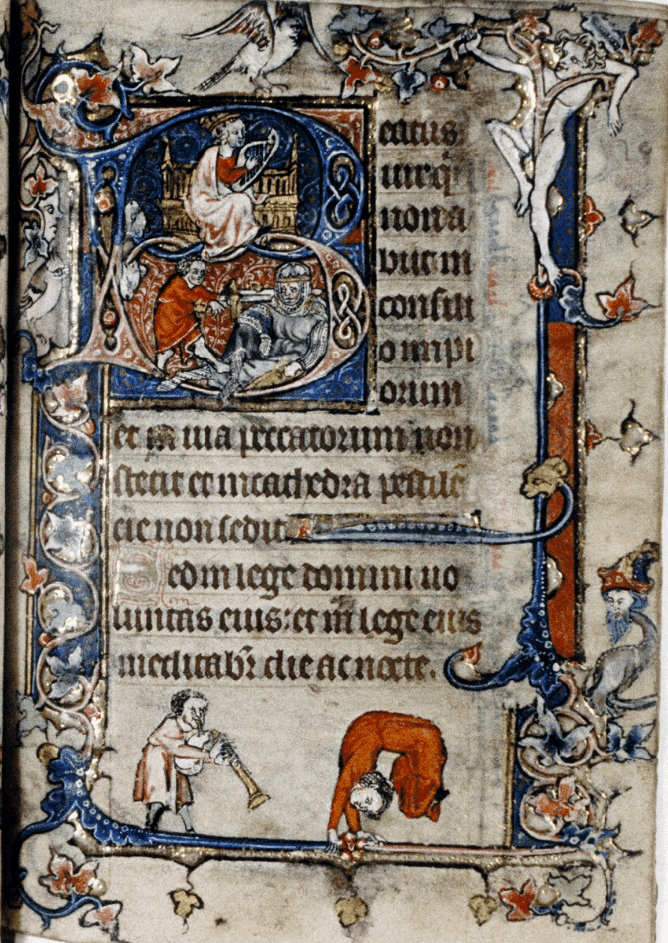 Beatus
uir q̄
non a
biit in
consili
o impi
orum
et in uia peccatorum non
stetit et in cathedra pestilē
cie non sedit
Sed in lege domini uo
luntas eius: et in lege eius
meditabr̄ die ac nocte.